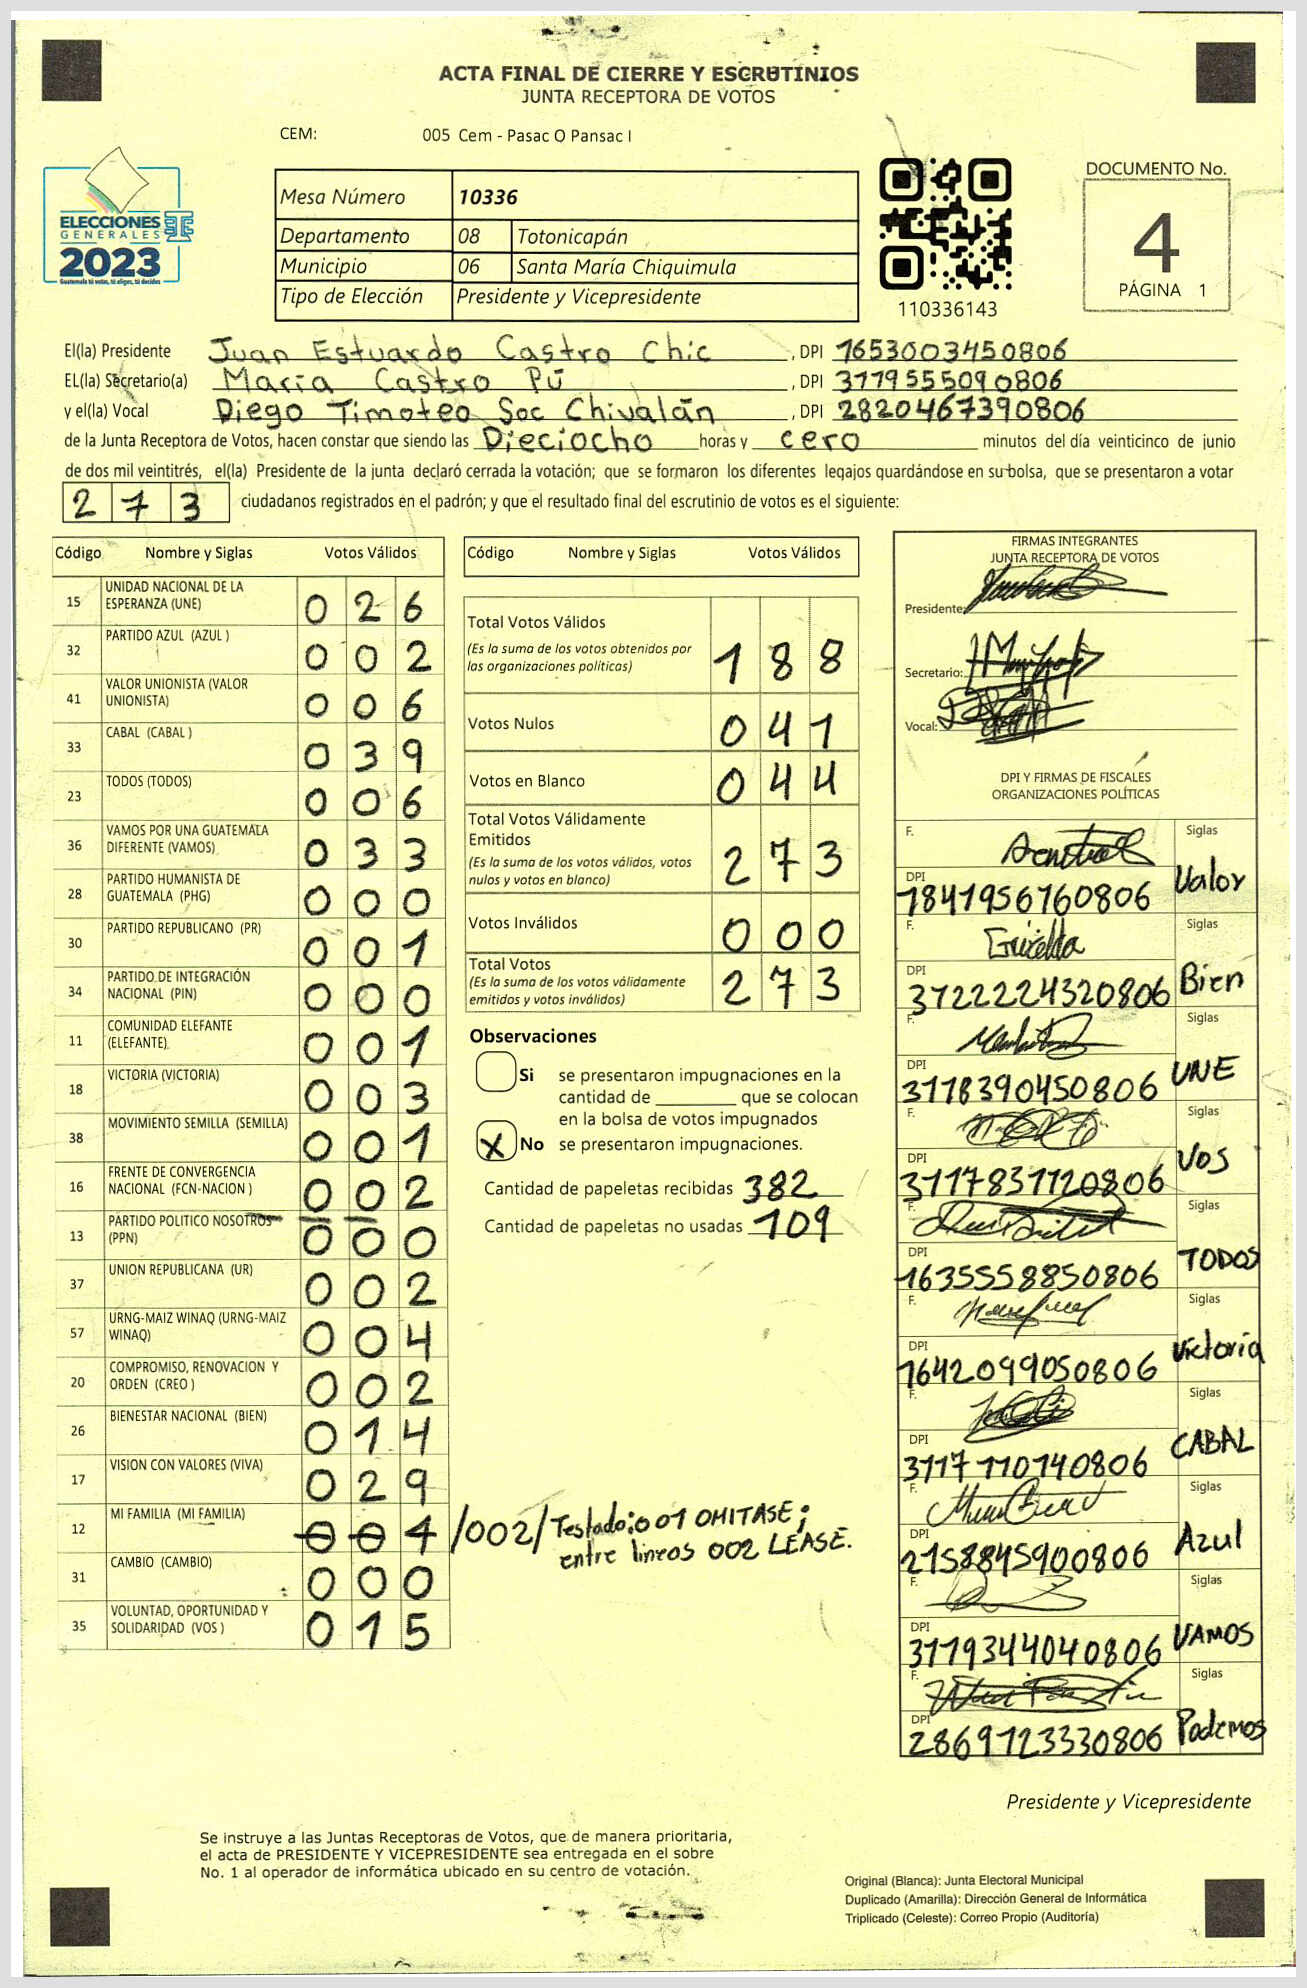 ACTA FINAL DE CIERRE Y ESCRUTINIOS
JUNTA RECEPTORA DE VOTOS
CEM: 005 Cem - Pasac O Pansac I
ELECCIONES
GENERALES
2023
Guatemala tú votas, tú eliges, tú decides
Mesa Número 10336
Departamento 08 Totonicapán
Municipio 06 Santa María Chiquimula
Tipo de Elección Presidente y Vicepresidente
110336143
DOCUMENTO No.
4
PÁGINA 1
El(la) Presidente Juan Estuardo Castro Chic, DPI 1653003450806
EL(la) Secretario(a) María Castro Pú, DPI 3179555090806
y el(la) Vocal Diego Timoteo Soc Chivalán, DPI 2820467390806
de la Junta Receptora de Votos, hacen constar que siendo las Dieciocho horas y cero minutos del día veinticinco de junio
de dos mil veintitrés, el(la) Presidente de la junta declaró cerrada la votación; que se formaron los diferentes legajos quardándose en su bolsa, que se presentaron a votar
273 ciudadanos registrados en el padrón; y que el resultado final del escrutinio de votos es el siguiente:
Código Nombre y Siglas Votos Válidos
15 UNIDAD NACIONAL DE LA ESPERANZA (UNE) 026
32 PARTIDO AZUL (AZUL ) 002
41 VALOR UNIONISTA (VALOR UNIONISTA) 006
33 CABAL (CABAL ) 039
23 TODOS (TODOS) 006
36 VAMOS POR UNA GUATEMALA DIFERENTE (VAMOS) 033
28 PARTIDO HUMANISTA DE GUATEMALA (PHG) 000
30 PARTIDO REPUBLICANO (PR) 001
34 PARTIDO DE INTEGRACIÓN NACIONAL (PIN) 000
11 COMUNIDAD ELEFANTE (ELEFANTE) 001
18 VICTORIA (VICTORIA) 003
38 MOVIMIENTO SEMILLA (SEMILLA) 001
16 FRENTE DE CONVERGENCIA NACIONAL (FCN-NACION ) 002
13 PARTIDO POLITICO NOSOTROS (PPN) 000
37 UNION REPUBLICANA (UR) 002
57 URNG-MAIZ WINAQ (URNG-MAIZ WINAQ) 004
20 COMPROMISO, RENOVACION Y ORDEN (CREO ) 002
26 BIENESTAR NACIONAL (BIEN) 014
17 VISION CON VALORES (VIVA) 029
12 MI FAMILIA (MI FAMILIA) 001 /002/ Testado: 001 OMITASE;
entre lineas 002 LEASE.
31 CAMBIO (CAMBIO) 000
35 VOLUNTAD, OPORTUNIDAD Y SOLIDARIDAD (VOS ) 015
Código Nombre y Siglas Votos Válidos
Total Votos Válidos 188
(Es la suma de los votos obtenidos por
las organizaciones políticas)
Votos Nulos 041
Votos en Blanco 044
Total Votos Válidamente
Emitidos 273
(Es la suma de los votos válidos, votos
nulos y votos en blanco)
Votos Inválidos 000
Total Votos 273
(Es la suma de los votos válidamente
emitidos y votos inválidos)
Observaciones
Si se presentaron impugnaciones en la
cantidad de ________ que se colocan
en la bolsa de votos impugnados
X No se presentaron impugnaciones.
Cantidad de papeletas recibidas 382
Cantidad de papeletas no usadas 109
FIRMAS INTEGRANTES
JUNTA RECEPTORA DE VOTOS
Presidente:
Secretario:
Vocal:
DPI Y FIRMAS DE FISCALES
ORGANIZACIONES POLÍTICAS
F. Siglas
DPI 1841956760806 Valor
F. Griselda Siglas
DPI 3722224320806 Bien
F. Siglas
DPI 3178390450806 UNE
F. Siglas
DPI 3117831720806 VOS
F. Siglas
DPI 1635558850806 TODOS
F. Siglas
DPI 1642099050806 Victoria
F. Siglas
DPI 3117110140806 CABAL
F. Siglas
DPI 2158845900806 Azul
F. Siglas
DPI 3179344040806 VAMOS
F. Siglas
DPI 2869723330806 Podemos
Presidente y Vicepresidente
Se instruye a las Juntas Receptoras de Votos, que de manera prioritaria,
el acta de PRESIDENTE Y VICEPRESIDENTE sea entregada en el sobre
No. 1 al operador de informática ubicado en su centro de votación.
Original (Blanca): Junta Electoral Municipal
Duplicado (Amarilla): Dirección General de Informática
Triplicado (Celeste): Correo Propio (Auditoría)